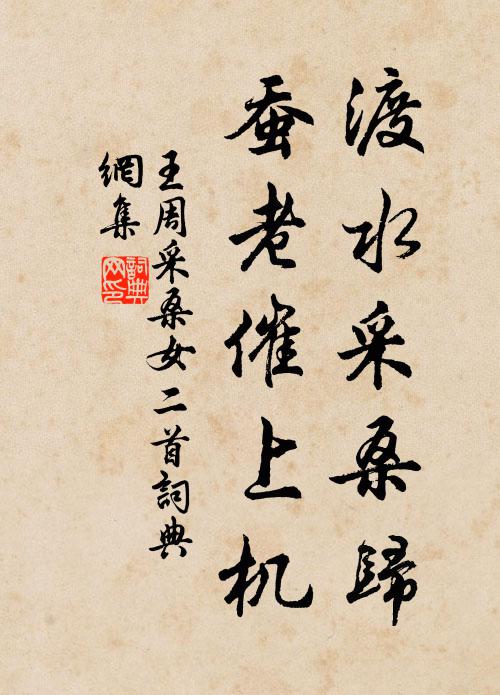 渡水采桑歸
蚕老催上机
王周采桑女二首詞典
網集
詞典网印